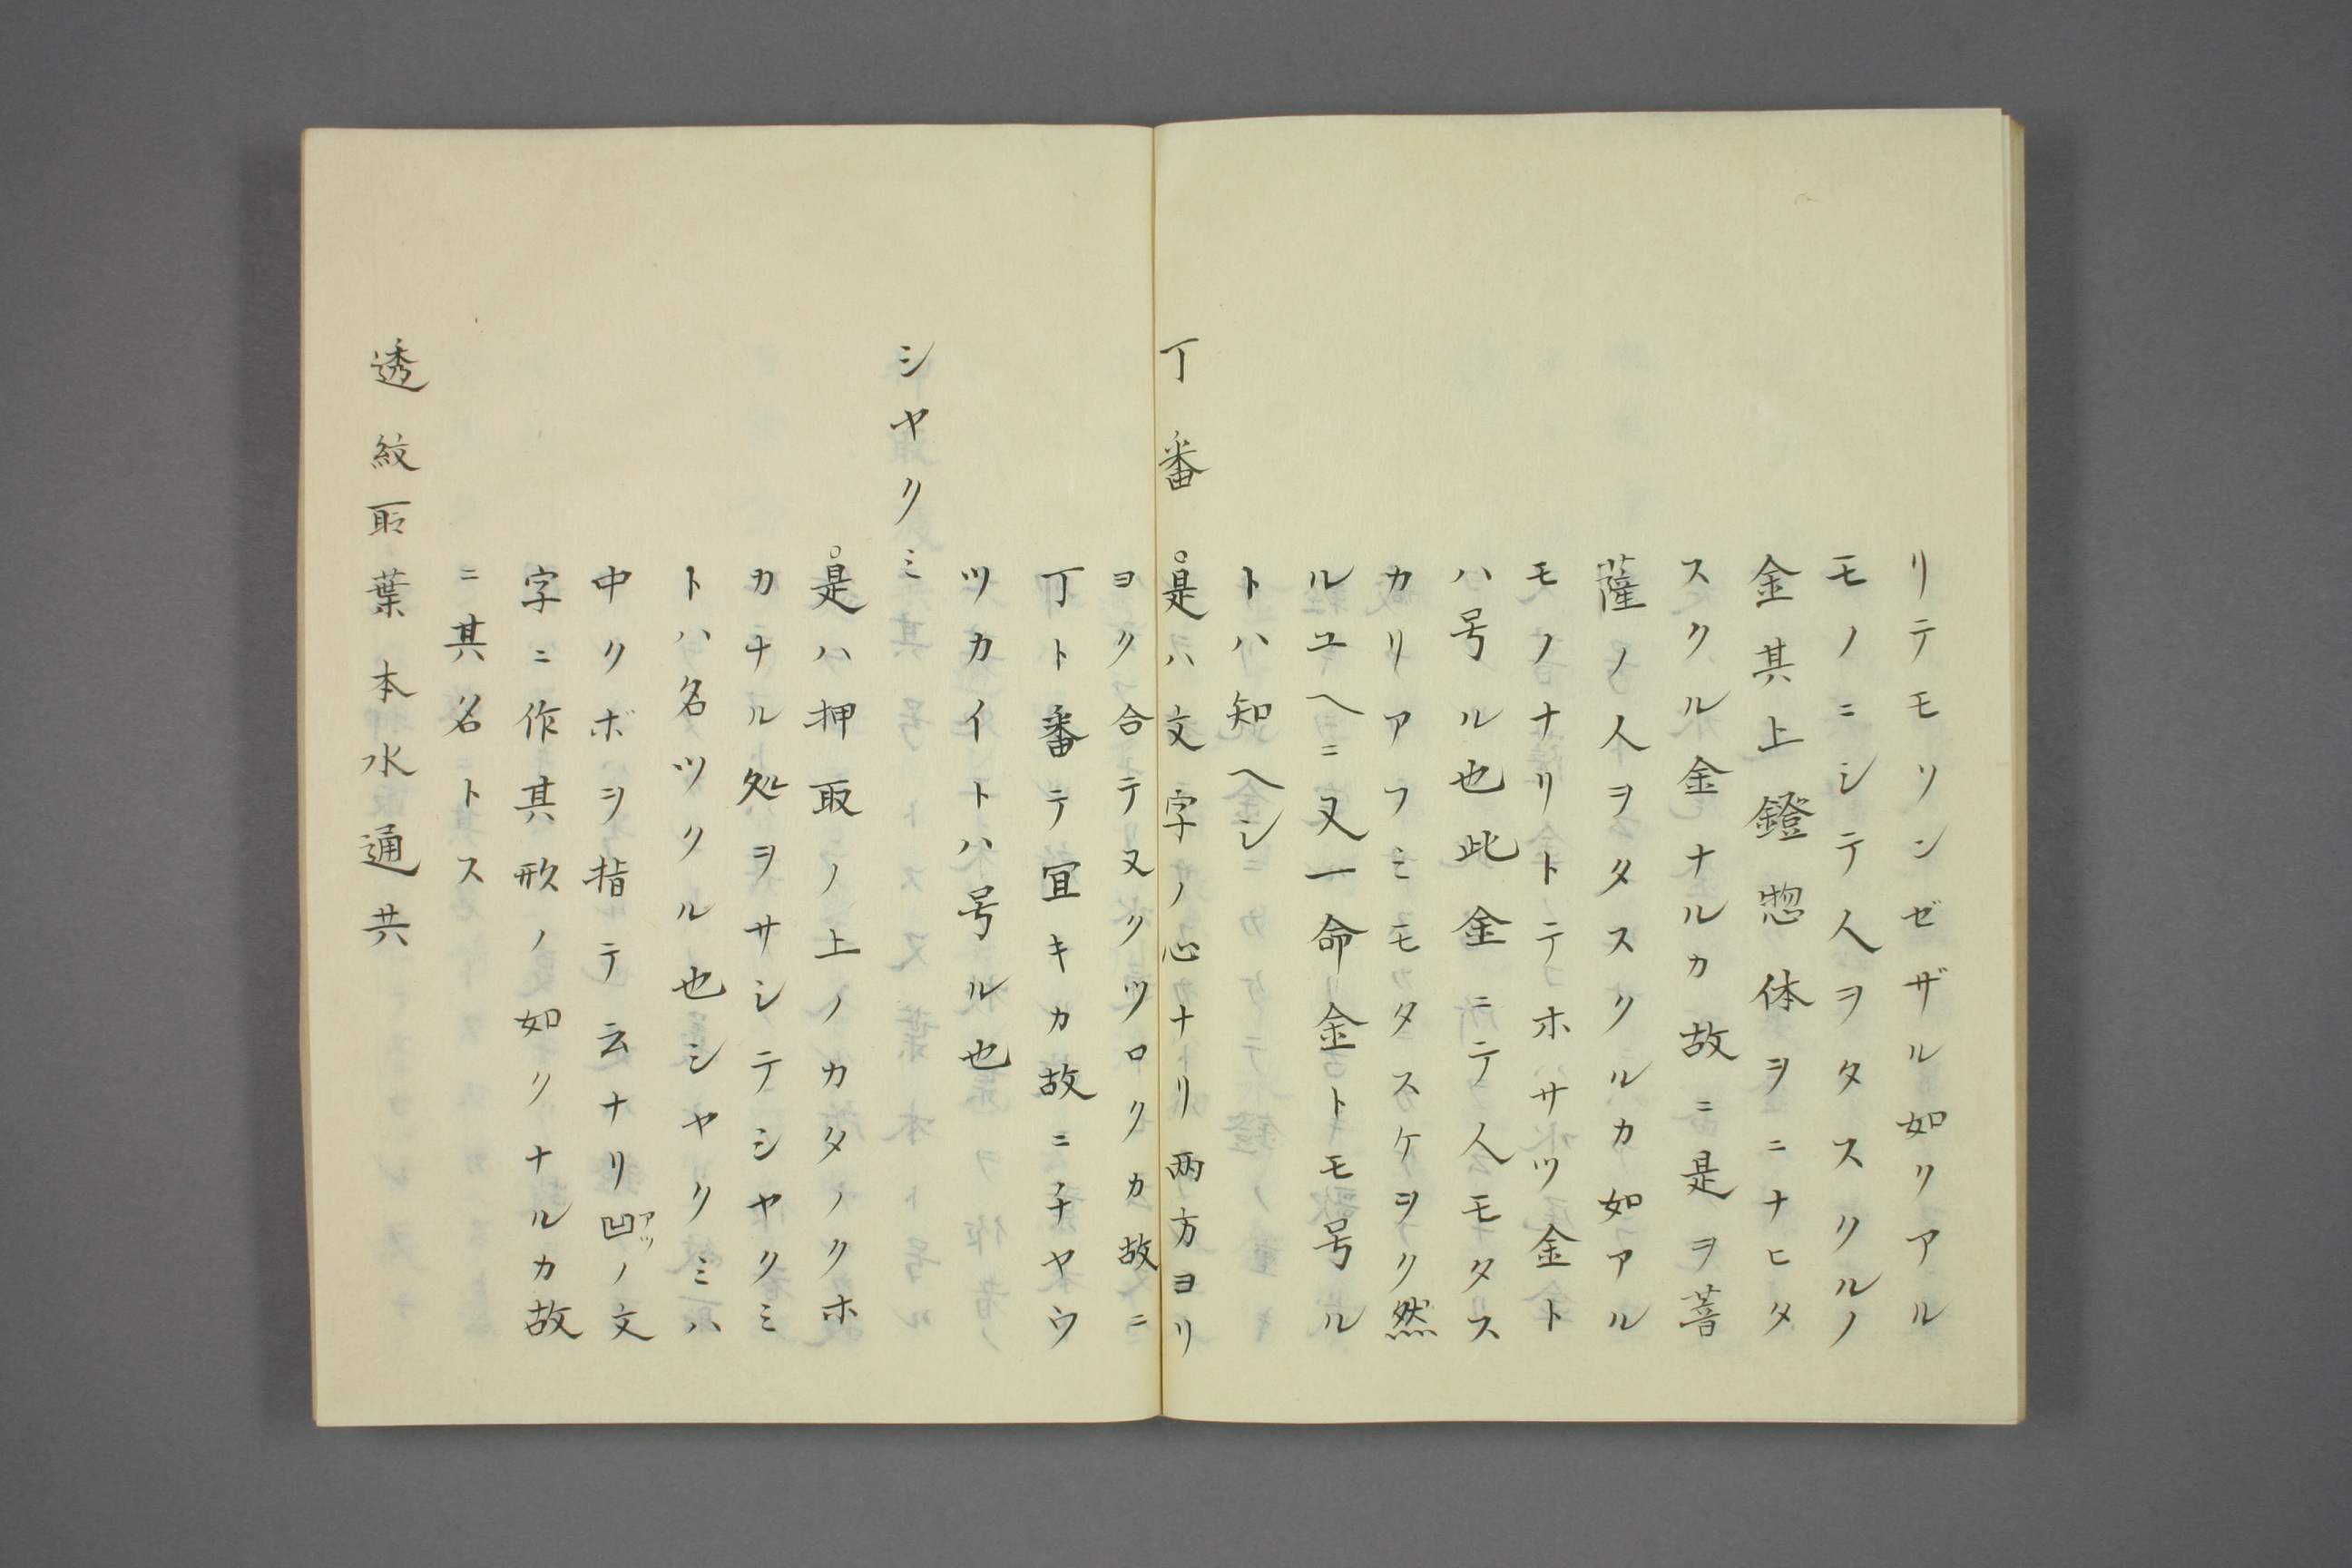 リテモソンゼザル如クアル
モノニシテ人ヲタスクルノ
金其上鐙惣体ヲニナヒタ
スクル金ナルカ故ニ是ヲ菩
薩ノ人ヲタスクルカ如アル
モノナリトテホサツ金ト
ハ号ル也此金ニテ人モタス
カリアフミモタスケヲク然
ルユヘニ又一命金トモ号ル
トハ知ヘシ
丁番 是ハ文字ノ心ナリ両方ヨリ
ヨク合テ又クツロクカ故ニ
丁ト番テ宜キカ故ニチヤウ
ツカイトハ号ル也
シヤクミ
是ハ押取ノ上ノカタノクホ
カナル処ヲサシテシヤクミ
トハ名ツクル也シヤクミハ
中クボヲ指テ云ナリ凹アツノ文
字ニ作其形ノ如クナルカ故
ニ其名トス
透紋取葉本水通共